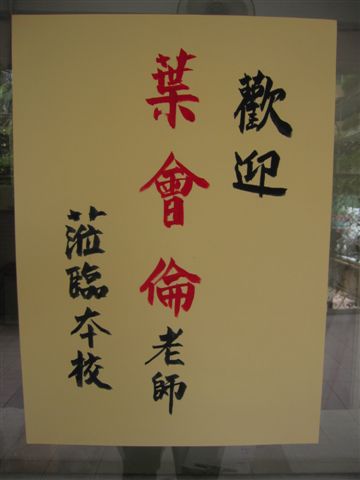 歡迎
葉會倫老師
蒞臨本校